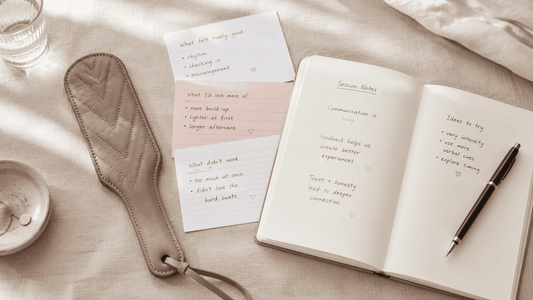 What felt really good
• rhythm
• checking in
• encouragement ♡
What I'd love more of
• more build-up
• lighter at first
• longer aftercare ♡
What didn't work
• too much at once
• didn't love the
hard swats ♡
Session Notes
Communication is
Feedback helps us
create better
experiences ♡
Trust + honesty
lead to deeper
connection ♡
Ideas to try
• vary intensity
• use more
verbal cues
• explore timing
♡